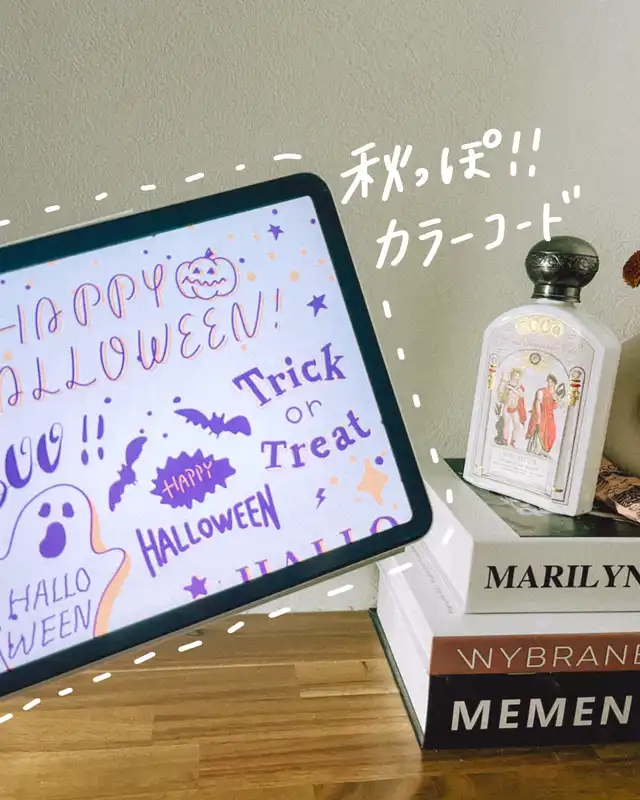 秋っぽ!!
カラーコード
HAPPY
HALLOWEEN!
Trick
or
Treat
BOO!!
HAPPY
HALLOWEEN
HALLO
WEEN
HALLO
MARILYN
WYBRANE
MEMEN